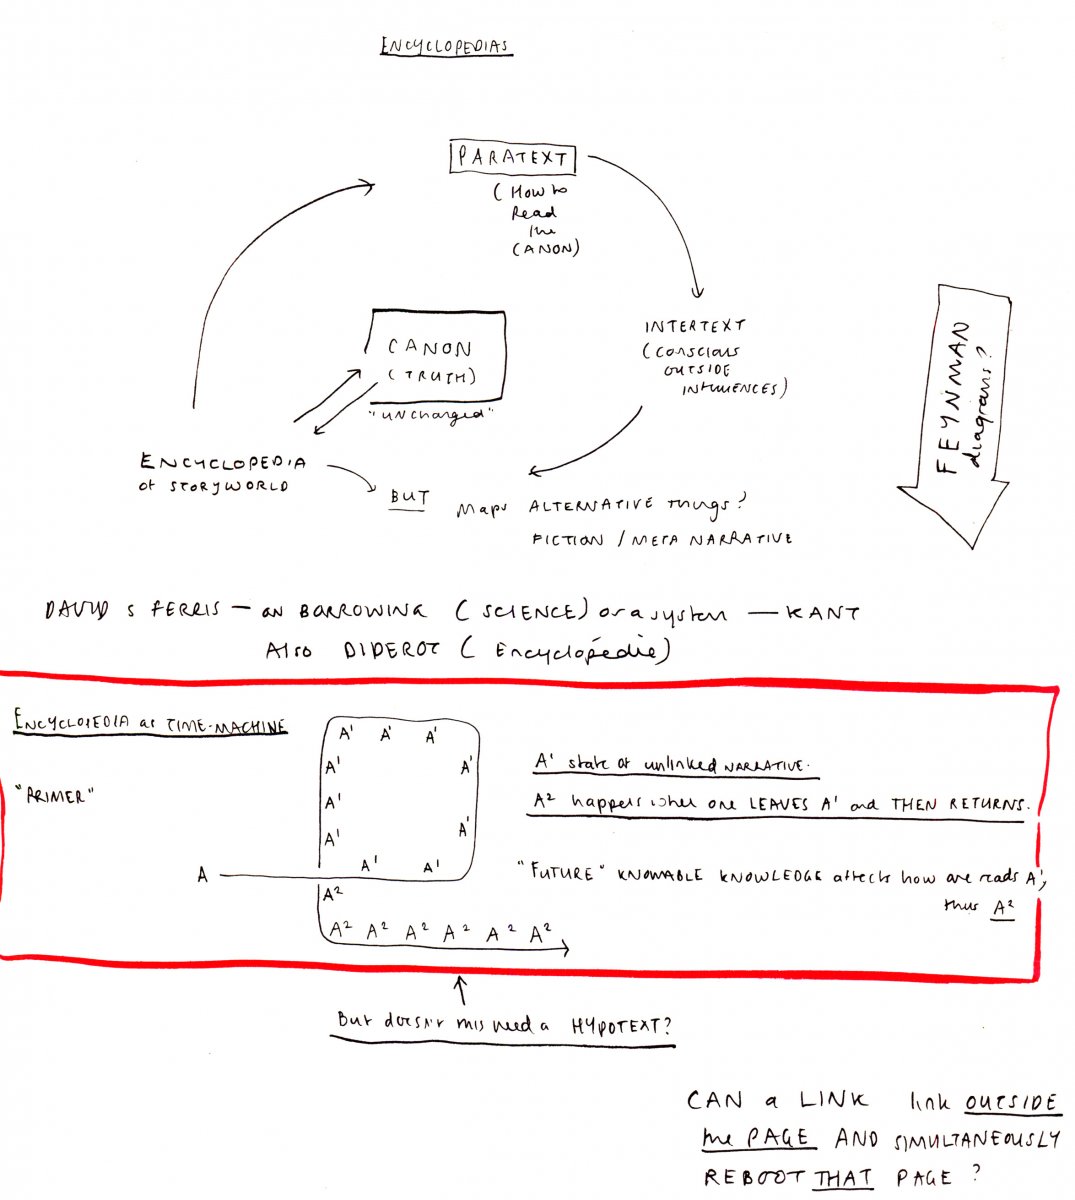 ENCYCLOPEDIAS
PARATEXT
(How to
Read
the
CANON)
INTERTEXT
(CONSCIOUS
OUTSIDE
INFLUENCES)
CANON
(TRUTH)
"UNCHARGED"
FEYNMAN
diagrams?
ENCYCLOPEDIA
of STORYWORLD
BUT Maps ALTERNATIVE Things?
FICTION / META NARRATIVE
DAVID S FERRIS — on BORROWING (SCIENCE) of a system — KANT
Also DIDEROT (Encyclopédie)
ENCYCLOPEDIA as TIME-MACHINE
"PRIMER"
A¹ A¹ A¹
A¹ A¹
A¹
A¹ A¹
A¹ A¹
A
A²
A² A² A² A² A² A²
A¹ state of unlinked NARRATIVE.
A² happens when one LEAVES A¹ and THEN RETURNS.
"FUTURE" KNOWABLE KNOWLEDGE affects how one reads A¹,
thus A²
But doesn't this need a HYPOTEXT?
CAN a LINK link OUTSIDE
the PAGE AND SIMULTANEOUSLY
REBOOT THAT PAGE?